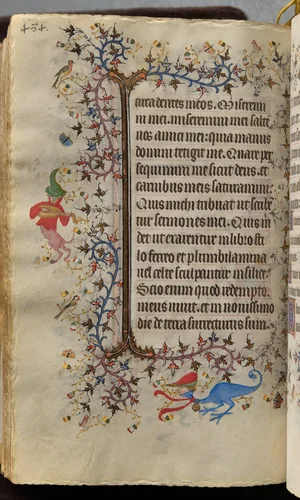 circa dentes meos. Miseremi
ni mei. miseremini mei saltẽ
uos amici mei: quia manus
domini tetigit me. Quare per
sequimini me sicut deus. et
carnibus meis saturamini:
Quis michi tribuat ut scribã
tur sermones mei. Quis m̃
det ut exarentur in libro sti
lo ferreo et plumbi lamina
uel celte sculpantur in silice.
Scio enim quod redemptor
meus uiuit. et in nouissimo
die de terra surrecturus sum.